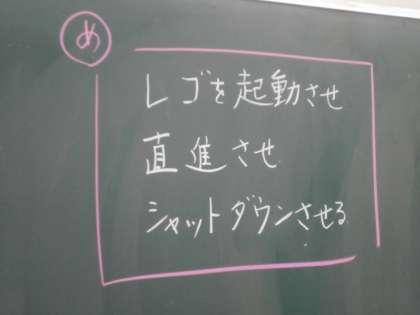 め
レゴを起動させ
直進させ
シャットダウンさせる